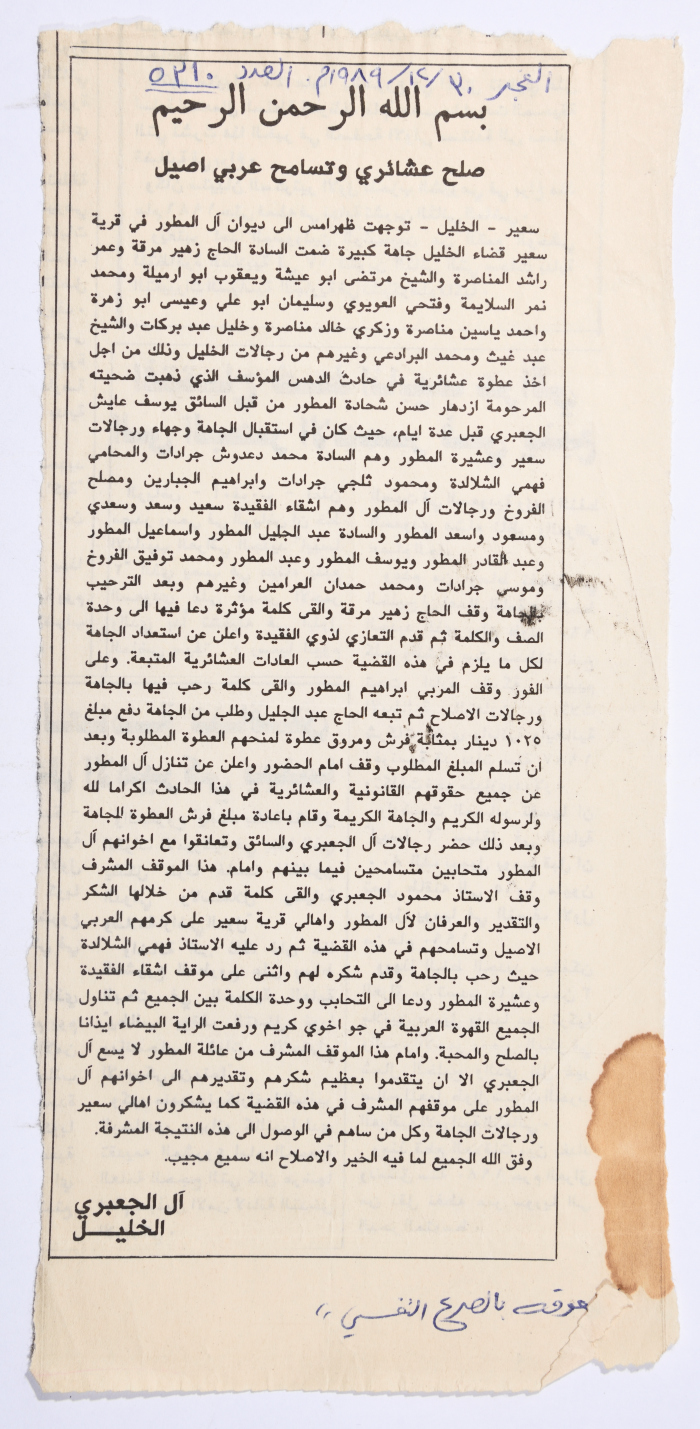 الفجر ٣٠/١٢/١٩٨٩م. العدد ٥٣١٠
بسم الله الرحمن الرحيم
صلح عشائري وتسامح عربي اصيل
سعير - الخليل - توجهت ظهرامس الى ديوان آل المطور في قرية
سعير قضاء الخليل جاهة كبيرة ضمت السادة الحاج زهير مرقة وعمر
راشد المناصرة والشيخ مرتضى ابو عيشة ويعقوب ابو ارميلة ومحمد
نمر السلايمة وفتحي العويوي وسليمان ابو علي وعيسى ابو زهرة
واحمد ياسين مناصرة وزكري خالد مناصرة وخليل عبد بركات والشيخ
عبد غيث ومحمد البرادعي وغيرهم من رجالات الخليل وذلك من اجل
اخذ عطوة عشائرية في حادث الدهس المؤسف الذي ذهبت ضحيته
المرحومة ازدهار حسن شحادة المطور من قبل السائق يوسف عايش
الجعبري قبل عدة ايام، حيث كان في استقبال الجاهة وجهاء ورجالات
سعير وعشيرة المطور وهم السادة محمد دعدوش جرادات والمحامي
فهمي الشلالدة ومحمود ثلجي جرادات وابراهيم الجبارين ومصلح
الفروخ ورجالات آل المطور وهم اشقاء الفقيدة سعيد وسعد وسعدي
ومسعود واسعد المطور والسادة عبد الجليل المطور واسماعيل المطور
وعبد القادر المطور ويوسف المطور وعبد المطور ومحمد توفيق الفروخ
وموسى جرادات ومحمد حمدان العرامين وغيرهم وبعد الترحيب
بالجاهة وقف الحاج زهير مرقة والقى كلمة مؤثرة دعا فيها الى وحدة
الصف والكلمة ثم قدم التعازي لذوي الفقيدة واعلن عن استعداد الجاهة
لكل ما يلزم في هذه القضية حسب العادات العشائرية المتبعة. وعلى
الفور وقف المربي ابراهيم المطور والقى كلمة رحب فيها بالجاهة
ورجالات الاصلاح ثم تبعه الحاج عبد الجليل وطلب من الجاهة دفع مبلغ
١٠٢٥ دينار بمثابة فرش ومروق عطوة لمنحهم العطوة المطلوبة وبعد
ان تسلم المبلغ المطلوب وقف امام الحضور واعلن عن تنازل آل المطور
عن جميع حقوقهم القانونية والعشائرية في هذا الحادث اكراما لله
ولرسوله الكريم والجاهة الكريمة وقام باعادة مبلغ فرش العطوة للجاهة
وبعد ذلك حضر رجالات آل الجعبري والسائق وتعانقوا مع اخوانهم آل
المطور متحابين متسامحين فيما بينهم وامام. هذا الموقف المشرف
وقف الاستاذ محمود الجعبري والقى كلمة قدم من خلالها الشكر
والتقدير والعرفان لآل المطور واهالي قرية سعير على كرمهم العربي
الاصيل وتسامحهم في هذه القضية ثم رد عليه الاستاذ فهمي الشلالدة
حيث رحب بالجاهة وقدم شكره لهم واثنى على موقف اشقاء الفقيدة
وعشيرة المطور ودعا الى التحابب ووحدة الكلمة بين الجميع ثم تناول
الجميع القهوة العربية في جو اخوي كريم ورفعت الراية البيضاء ايذانا
بالصلح والمحبة. وامام هذا الموقف المشرف من عائلة المطور لا يسع آل
الجعبري الا ان يتقدموا بعظيم شكرهم وتقديرهم الى اخوانهم آل
المطور على موقفهم المشرف في هذه القضية كما يشكرون اهالي سعير
ورجالات الجاهة وكل من ساهم في الوصول الى هذه النتيجة المشرفة.
وفق الله الجميع لما فيه الخير والاصلاح انه سميع مجيب.
آل الجعبري
الخليــل
النفسي ،،